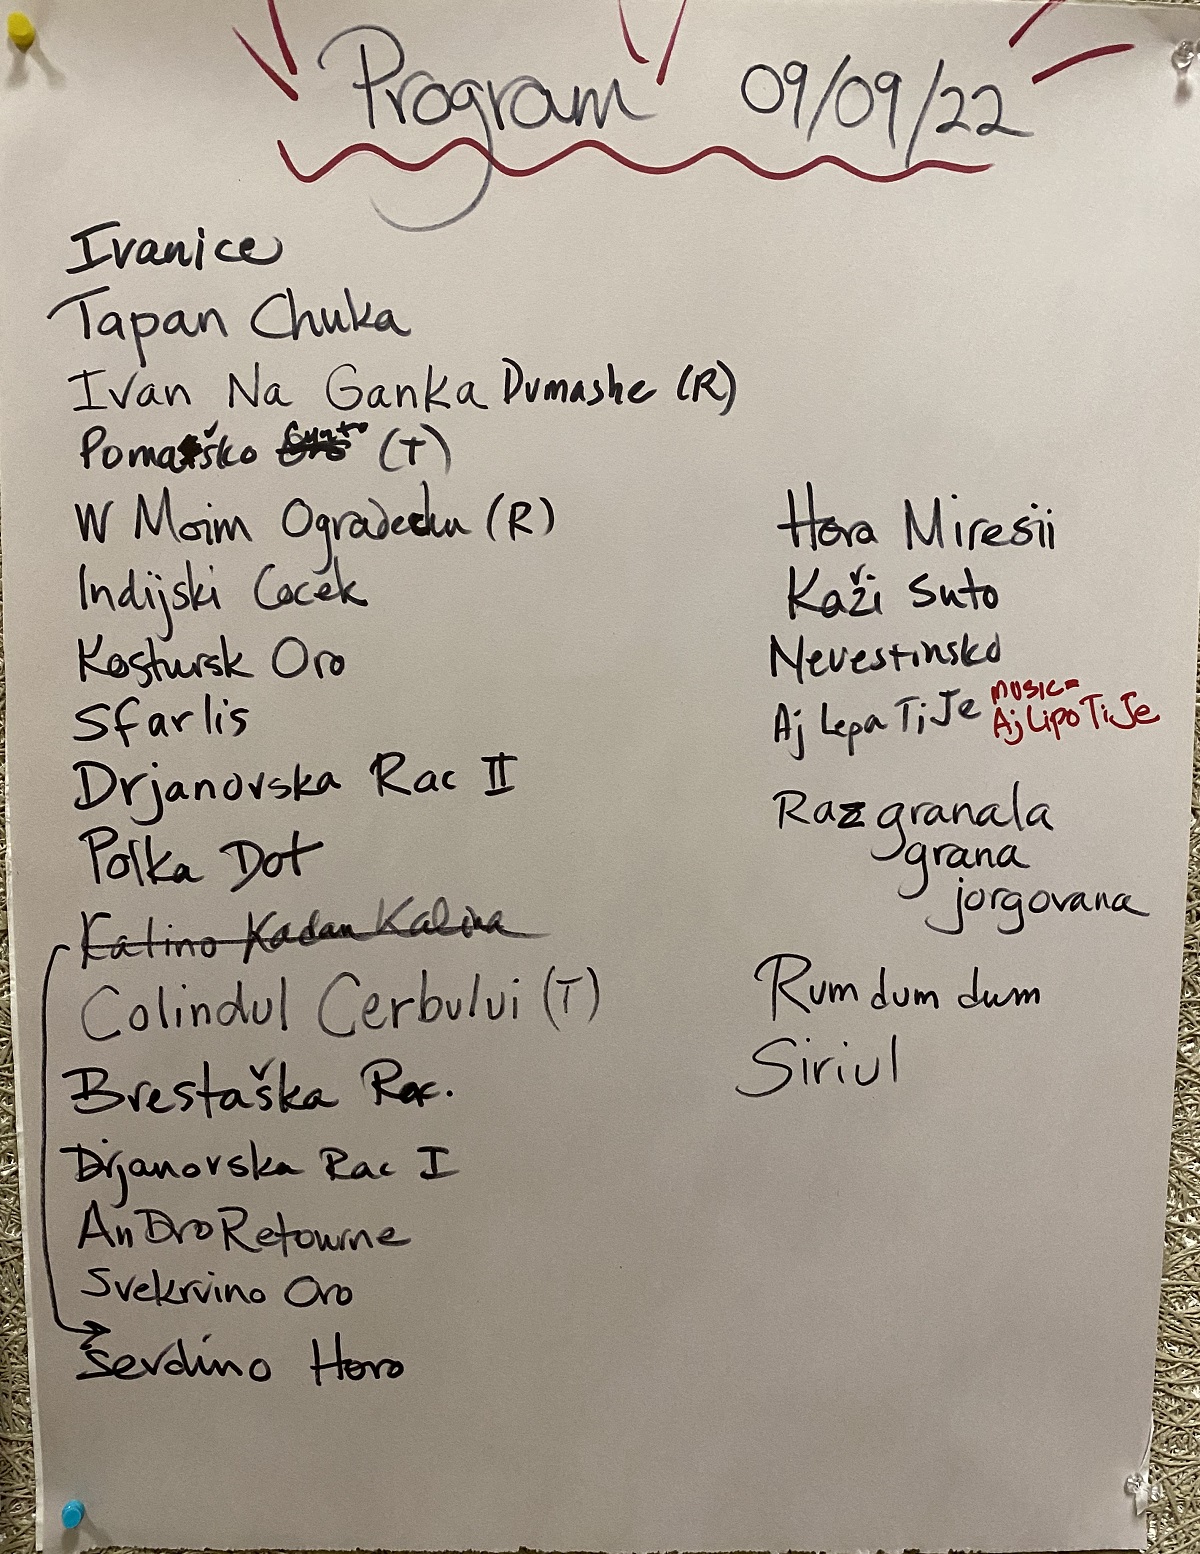 Program 09/09/22
Ivanice
Tapan Chuka
Ivan Na Ganka Dumashe (R)
Pomaško (T)
W Moim Ogradecku (R)
Indijski Cocek
Kostursk Oro
Sfarlis
Drjanovska Rac II
Polka Dot
Katino Kadan Kalina
Colindul Cerbului (T)
Brestaška Rac.
Drjanovska Rac I
An Dro Retourne
Svekrvino Oro
Serdino Horo
Hora Miresii
Kaži Suto
Nevestinsko
Aj Lepa Ti Je
music =
Aj Lipo Ti Je
Razgranala
grana
jorgovana
Rum dum dum
Siriul